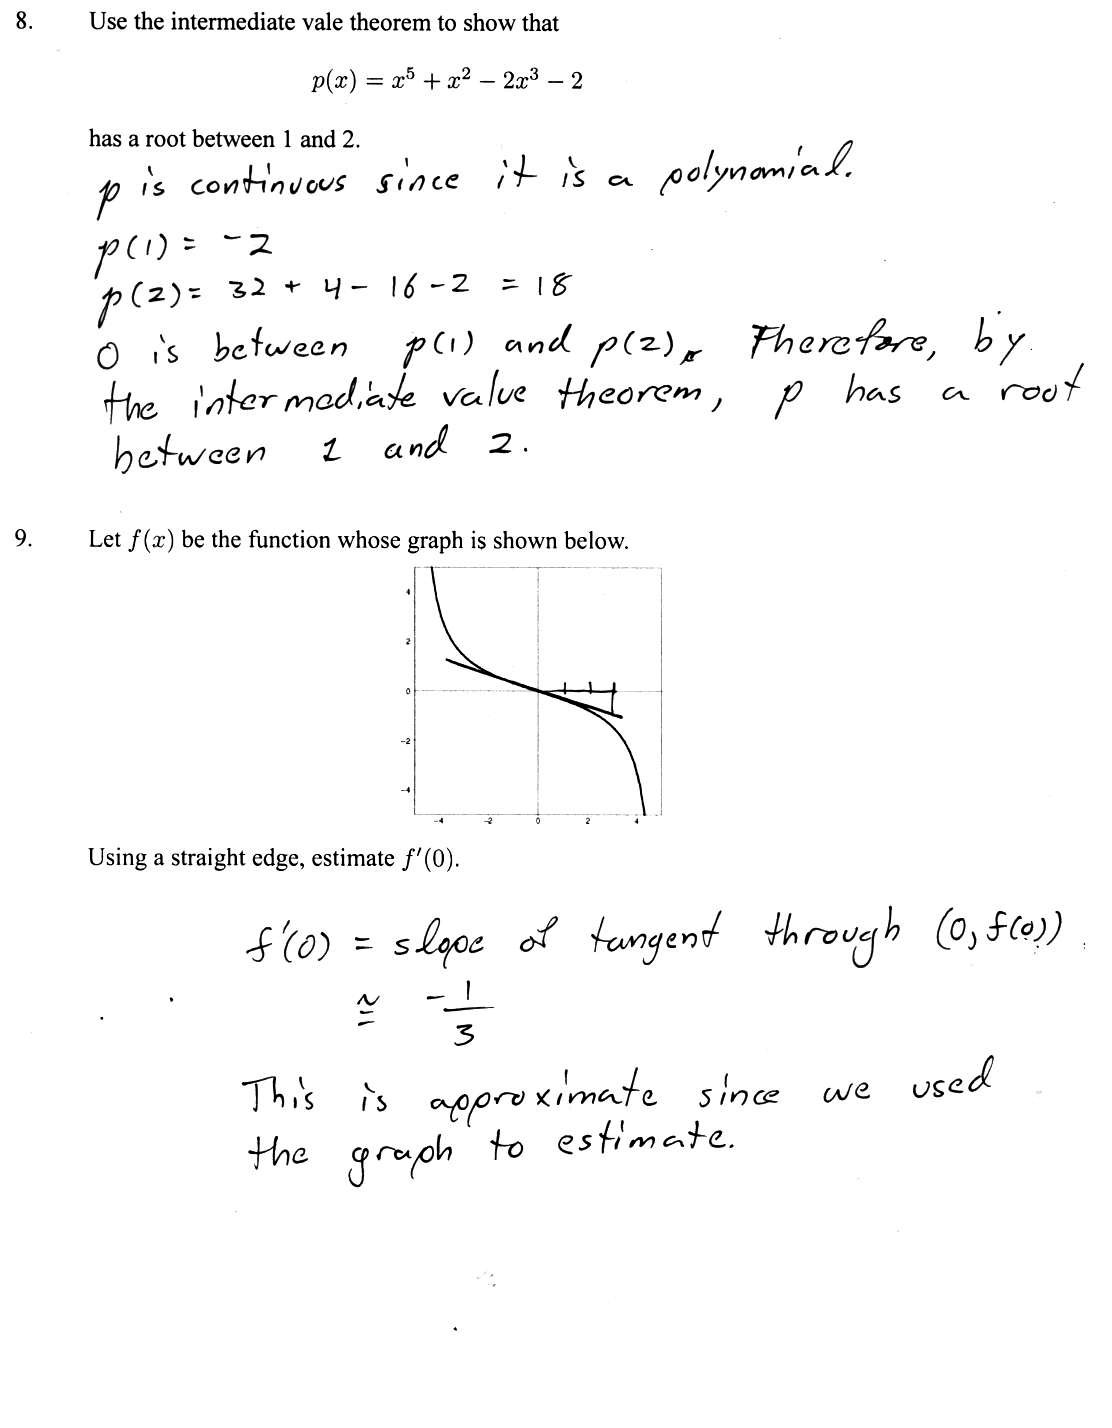 8. Use the intermediate vale theorem to show that
p(x) = x⁵ + x² − 2x³ − 2
has a root between 1 and 2.
p is continuous since it is a polynomial.
p(1) = -2
p(2) = 32 + 4 - 16 - 2 = 18
0 is between p(1) and p(2). Therefore, by
the intermediate value theorem, p has a root
between 1 and 2.
9. Let f(x) be the function whose graph is shown below.
4
2
0
-2
-4
-4 -2 0 2 4
Using a straight edge, estimate f′(0).
f'(0) = slope of tangent through (0, f(0))
≅ -1/3
This is approximate since we used
the graph to estimate.